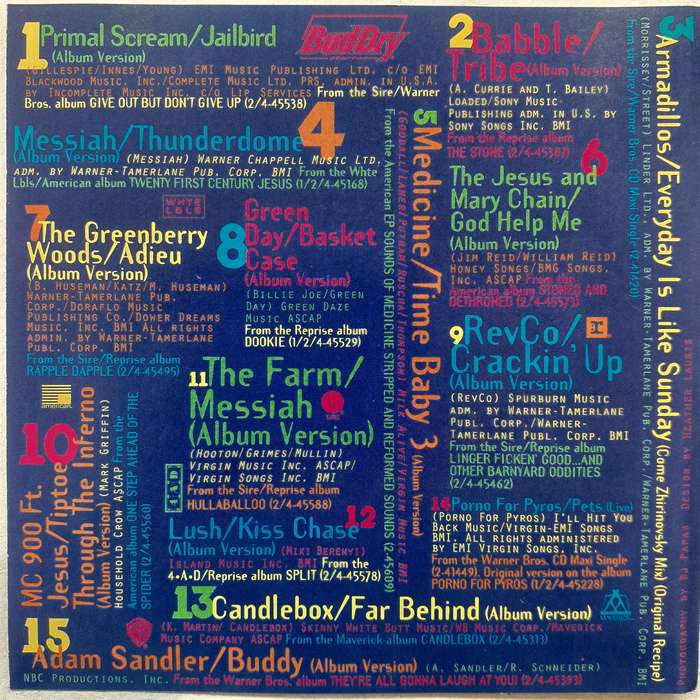 1 Primal Scream/Jailbird
(Album Version)
(Gillespie/Innes/Young) EMI Music Publishing Ltd. c/o EMI
Blackwood Music, Inc./Complete Music Ltd. PRS. admin. in U.S.A.
by Incomplete Music Inc. c/o Lip Services From the Sire/Warner
Bros. album GIVE OUT BUT DON'T GIVE UP (2/4-45538)
Bud Dry
2 Babble/
Tribe (Album Version)
(A. Currie and T. Bailey)
Loaded/Sony Music
Publishing adm. in U.S. by
Sony Songs Inc. BMI
From the Reprise album
THE STONE (2/4-45367)
3 Armadillos/Everyday Is Like Sunday (Come Zhirinovsky Mix) (Original Recipe)
(Morrissey/Street) Linder Ltd., adm. by Warner-Tamerlane Pub. Corp./Warner-Tamerlane Pub. Corp. BMI
From the Sire/Warner Bros. CD Maxi Single
4 Messiah/Thunderdome
(Album Version) (Messiah) Warner Chappell Music Ltd,
adm. by Warner-Tamerlane Pub. Corp. BMI From the Whte
Lbls/American album TWENTY FIRST CENTURY JESUS (1/2/4-45168)
5 Medicine/Time Baby 3 (Album Version)
Milk Alive/Virgin Music BMI
From the American EP SOUNDS OF MEDICINE STRIPPED AND REFORMED SOUNDS (2-45609)
6
The Jesus and
Mary Chain/
God Help Me
(Album Version)
(Jim Reid/William Reid)
Honey Songs/BMG Songs,
Inc. ASCAP From the
American album STONED AND
DETHRONED (2/4-45573)
WHTE
LBLS
7 The Greenberry
Woods/Adieu
(Album Version)
(B. Huseman/Katz/M. Huseman)
Warner-Tamerlane Pub.
Corp./Doraflo Music
Publishing Co./Dower Dreams
Music, Inc. BMI All rights
admin. by Warner-Tamerlane
Pub. Corp. BMI
From the Sire/Reprise album
RAPPLE DAPPLE (2/4-45495)
8 Green
Day/Basket
Case
(Album Version)
(Billie Joe/Green
Day) Green Daze
Music ASCAP
From the Reprise album
DOOKIE (1/2/4-45529)
9 RevCo/
Crackin' Up
(Album Version)
(RevCo) Spurburn Music
adm. by Warner-Tamerlane
Publ. Corp./Warner-
Tamerlane Publ. Corp. BMI
From the Sire/Reprise album
LINGER FICKEN' GOOD...AND
OTHER BARNYARD ODDITIES
(2/4-45462)
american
10 MC 900 Ft.
Jesus/Tiptoe
Through The Inferno
(Album Version) (Mark Griffin)
Household Crow ASCAP From the
American album ONE STEP AHEAD OF THE
SPIDER (2/4-45560)
11 The Farm/
Messiah
(Album Version)
(Hooton/Grimes/Mullin)
Virgin Music Inc. ASCAP/
Virgin Songs Inc. BMI
From the Sire/Reprise album
HULLABALOO (2/4-45588)
4AD
12
Lush/Kiss Chase
(Album Version) (Miki Berenyi)
Island Music Inc. BMI From the
4•A•D/Reprise album SPLIT (2/4-45578)
14 Porno For Pyros/Pets (Live)
(Porno For Pyros) I'll Hit You
Back Music/Virgin-EMI Songs
BMI. All rights administered
by EMI Virgin Songs, Inc.
From the Warner Bros. CD Maxi Single
(2-41449). Original version on the album
PORNO FOR PYROS (1/2/4-45228)
13 Candlebox/Far Behind (Album Version)
(K. Martin/ Candlebox) Skinny White Butt Music/WB Music Corp./Maverick
Music Company ASCAP From the Maverick album CANDLEBOX (2/4-45313)
15
Adam Sandler/Buddy (Album Version) (A. Sandler/R. Schneider)
NBC Productions, Inc. From the Warner Bros. album THEY'RE ALL GONNA LAUGH AT YOU! (2/4-45393)